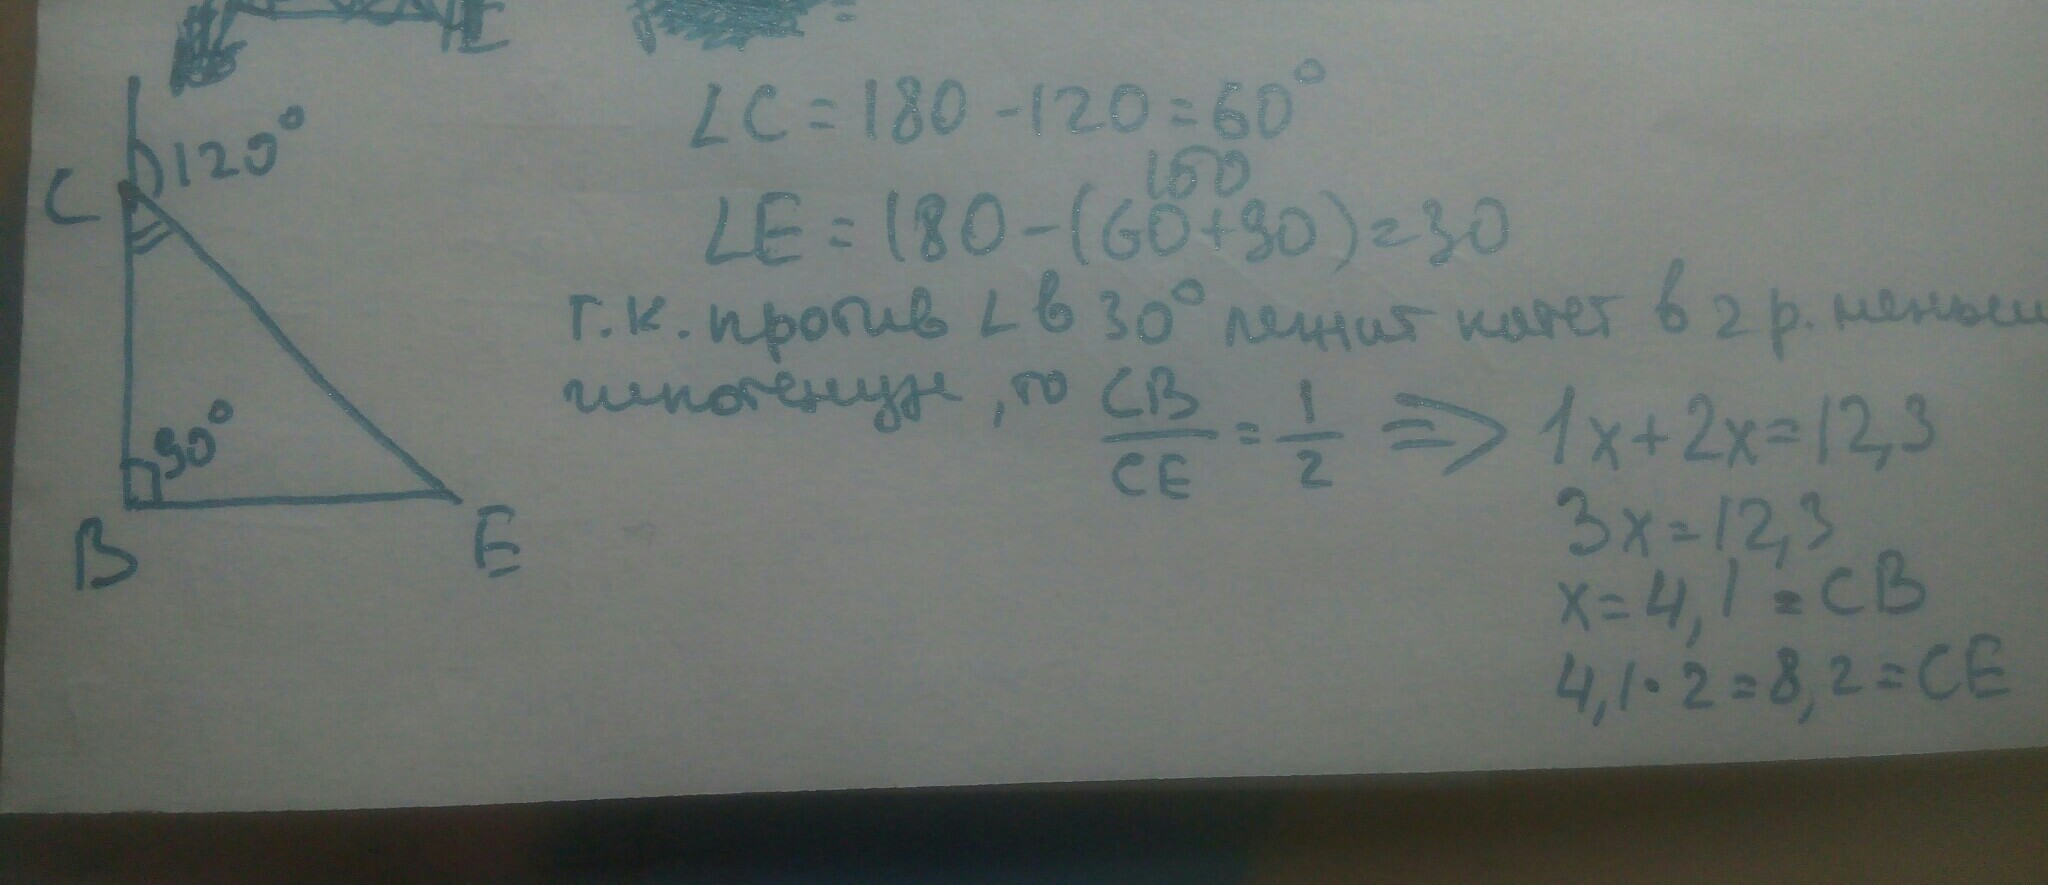 E
C
120°
90°
B
E
∠C = 180 - 120 = 60°
150
∠E = 180 - (60+90) = 30
т.к. против ∠ в 30° лежит катет в 2 р. меньш
гипотенузе, то CB/CE = 1/2 => 1x + 2x = 12,3
3x = 12,3
x = 4,1 = CB
4,1 · 2 = 8,2 = CE